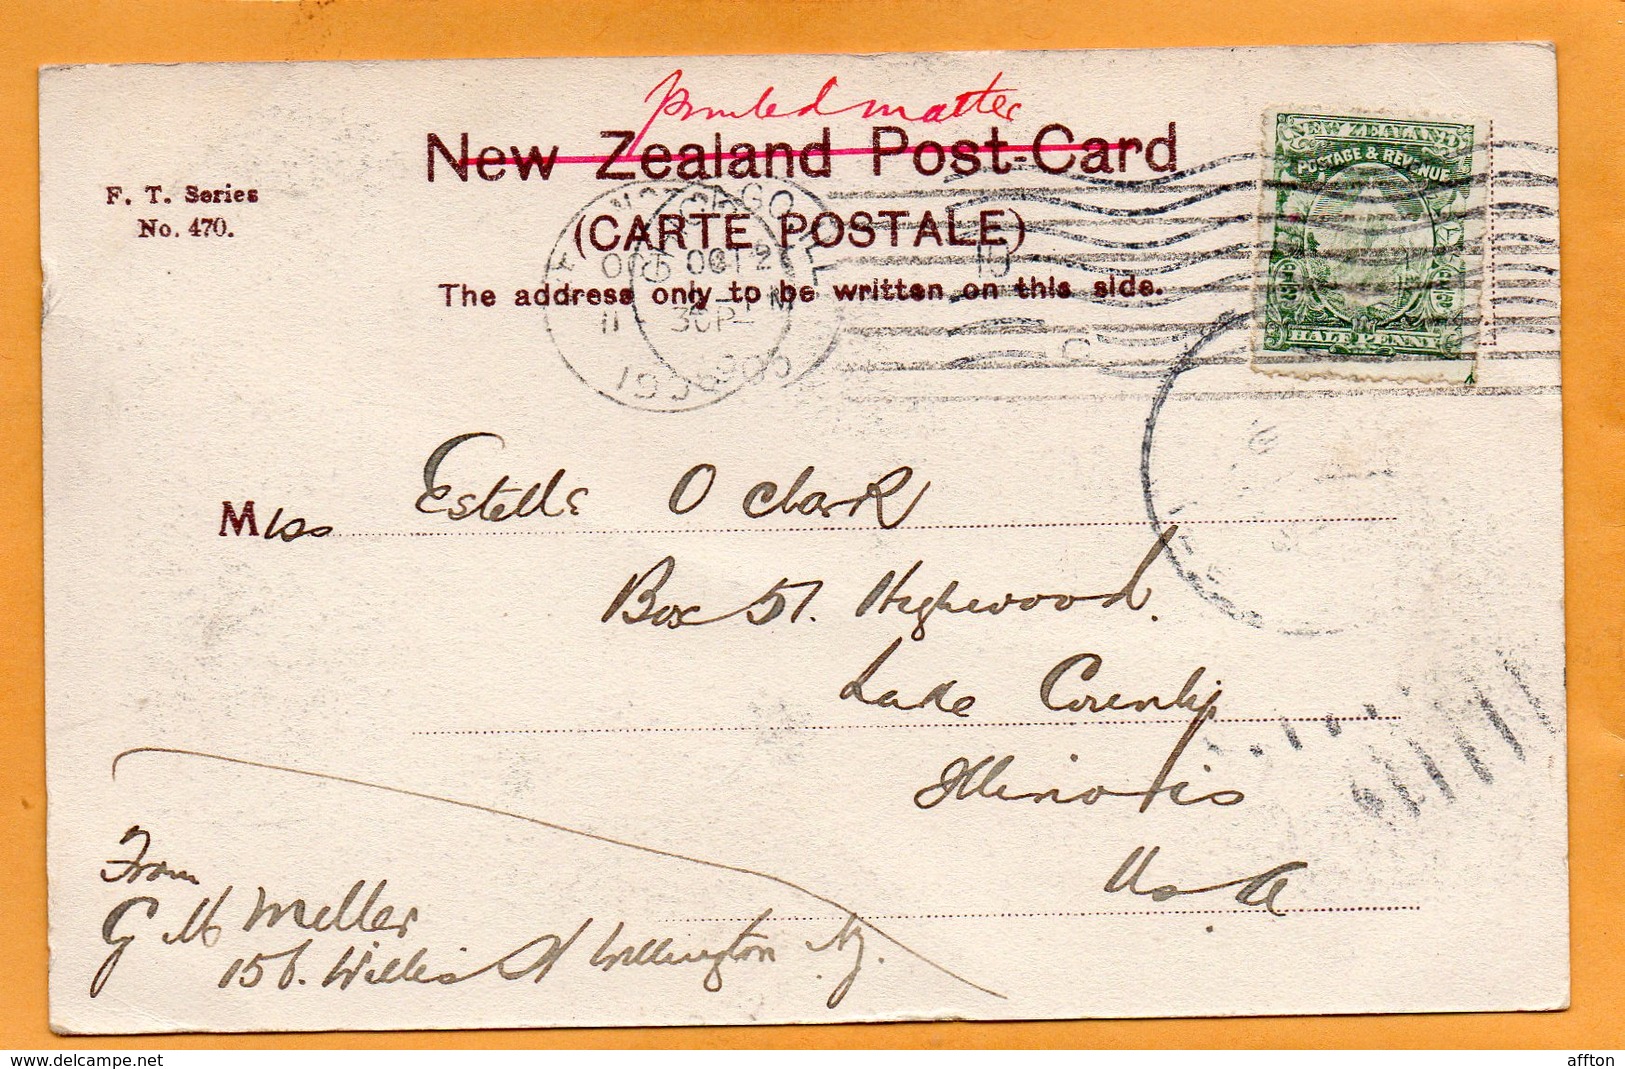 Printed matter
New Zealand Post-Card
(CARTE POSTALE)
The address only to be written on this side.
F. T. Series
No. 470.
NEW ZEALAND
POSTAGE & REVENUE
HALF PENNY
CHICAGO, ILL.
OCT 2
1905
Miss Estelle O Clark
Box 57. Highwood.
Lake County
Illinois
U S A
From
G M Meller
156. Willis St Wellington N Z.
delcampe.net
affton